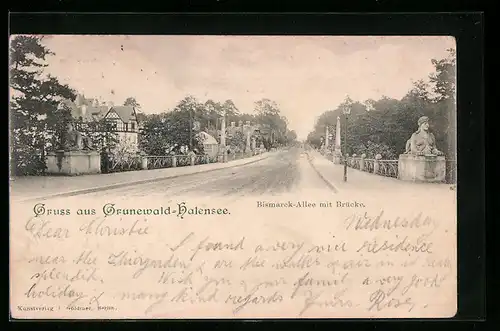 Gruss aus Grunewald-Halensee.
Bismarck-Allee mit Brücke.
Wednesday
Dear Christie
I found a very nice residence
near the Thiergarden & are the
air is
splendid. Wish you & your family a very good
holiday & many kind regards
Yours Rosy.
Kunstverlag J. Goldiner, Berlin.